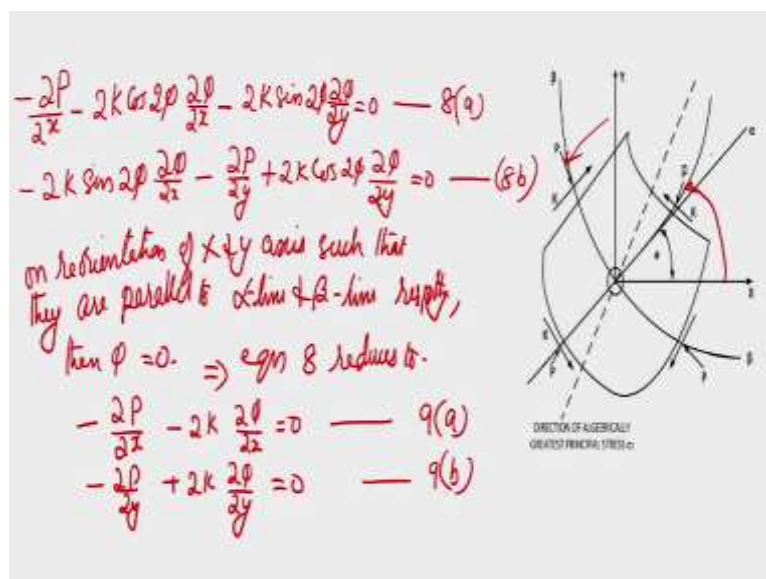 -∂P/∂x - 2K Cos 2φ ∂φ/∂x - 2K Sin 2φ ∂φ/∂y = 0 — 8(a)
-2K Sin 2φ ∂φ/∂x - ∂P/∂y + 2K Cos 2φ ∂φ/∂y = 0 — (8b)
on reorientation of x & y axis such that
they are parallel to α-line & β-line respctly,
then φ = 0. ⇒ eqn 8 reduces to.
-∂P/∂x - 2K ∂φ/∂x = 0 — 9(a)
-∂P/∂y + 2K ∂φ/∂y = 0 — 9(b)
β
Y
α
P
P
K
K
φ
O
X
K
P
β
P
DIRECTION OF ALGEBRICALLY
GREATEST PRINCIPAL STRESS σ1